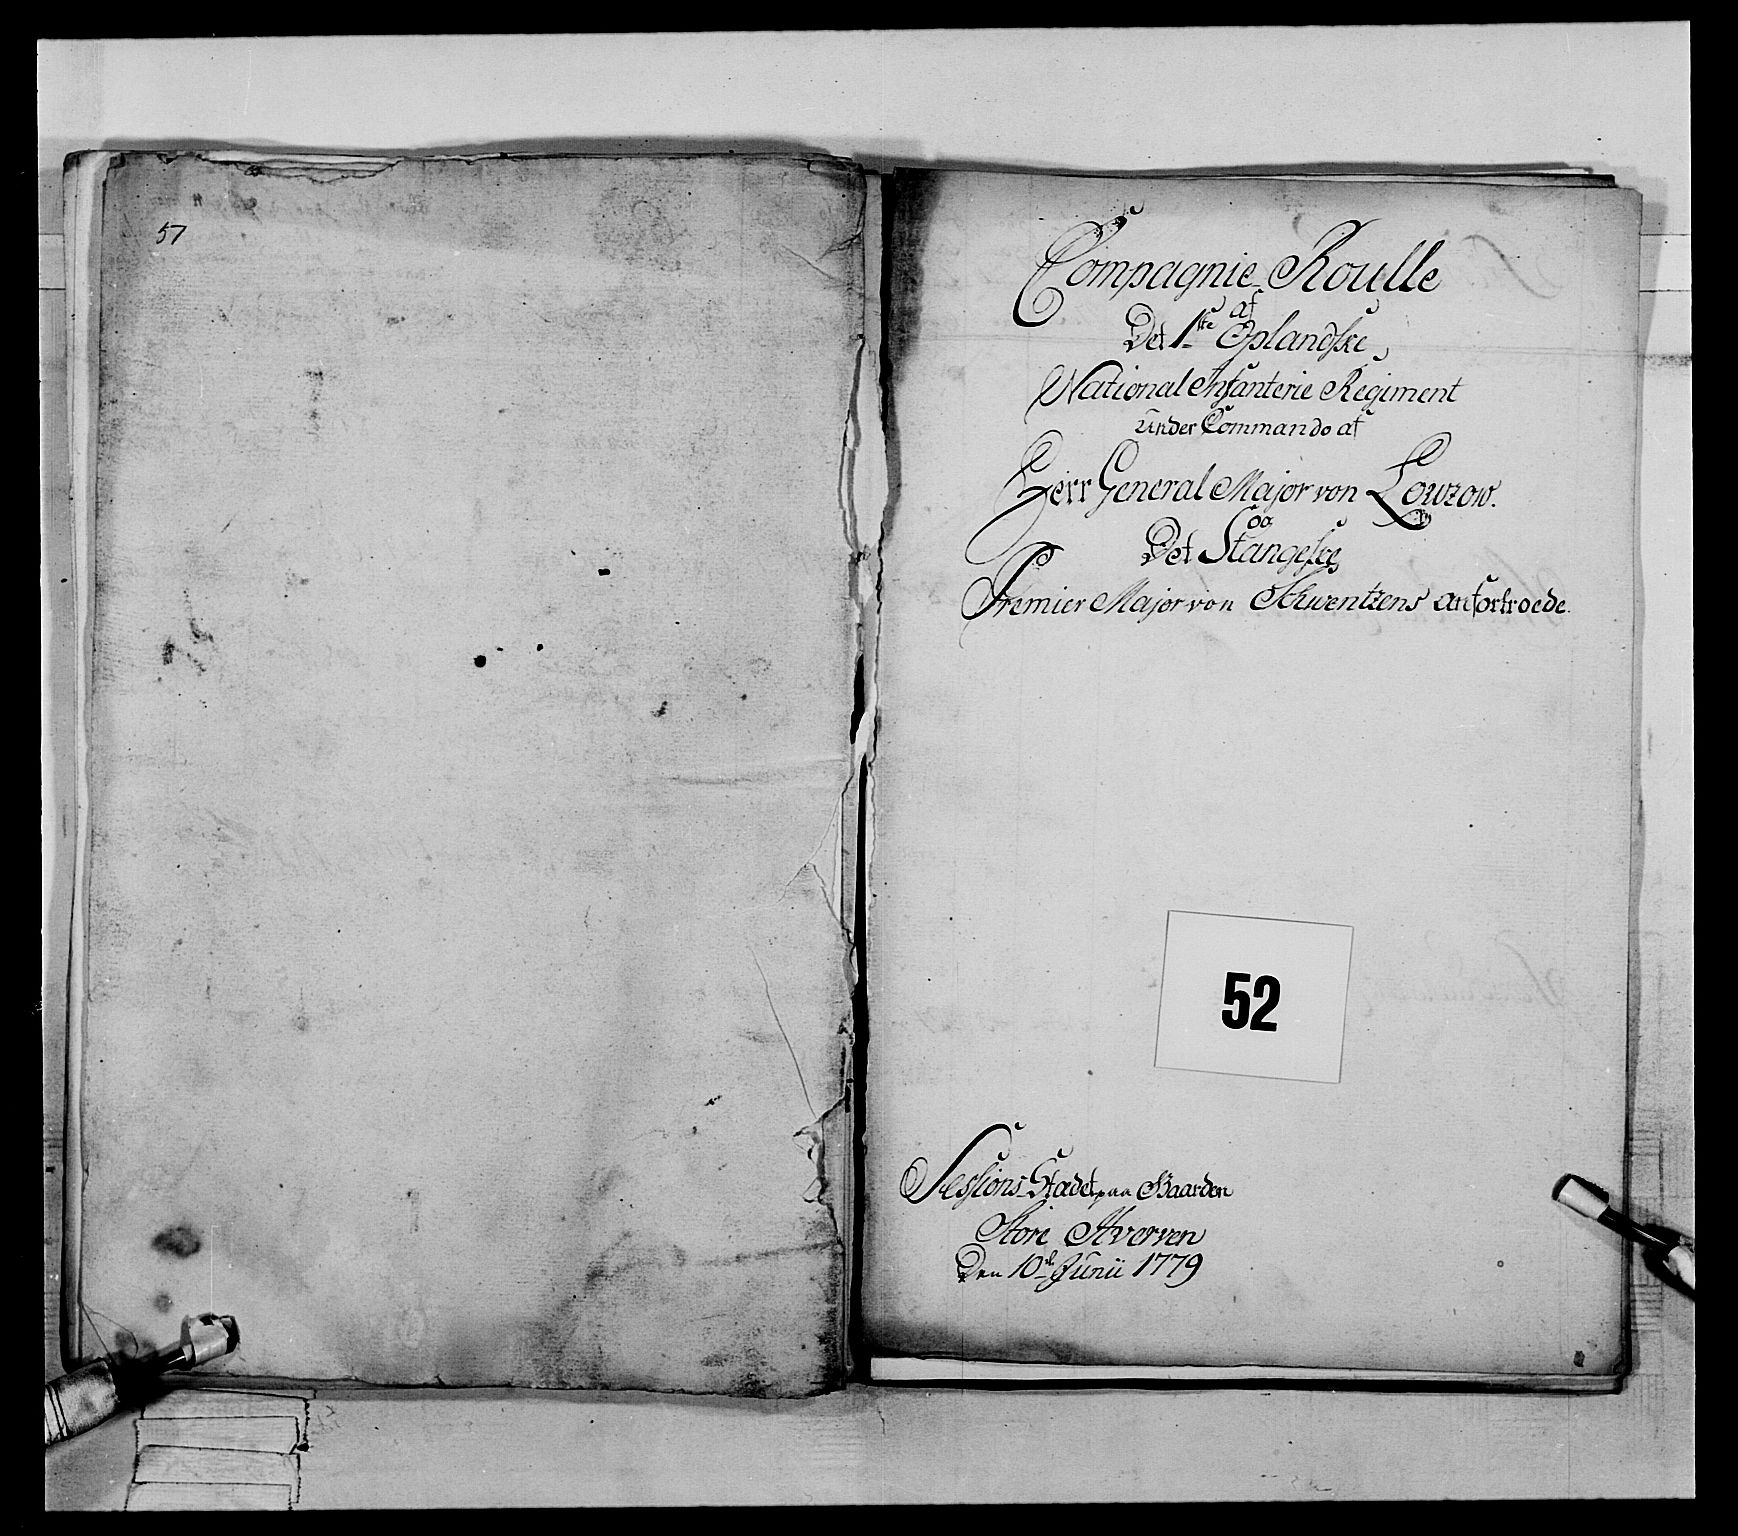 57
Compagnie Roulle
af
Det 1ste Oplandske
National Infanterie Regiment
under Commando af
Herr General Major von Lowzow.
og
Det Stangeske
Premier Major von Schwentzens anfortroede.
52
Sessions-Stadet paa Gaarden
Store
Den 10de Junii 1779